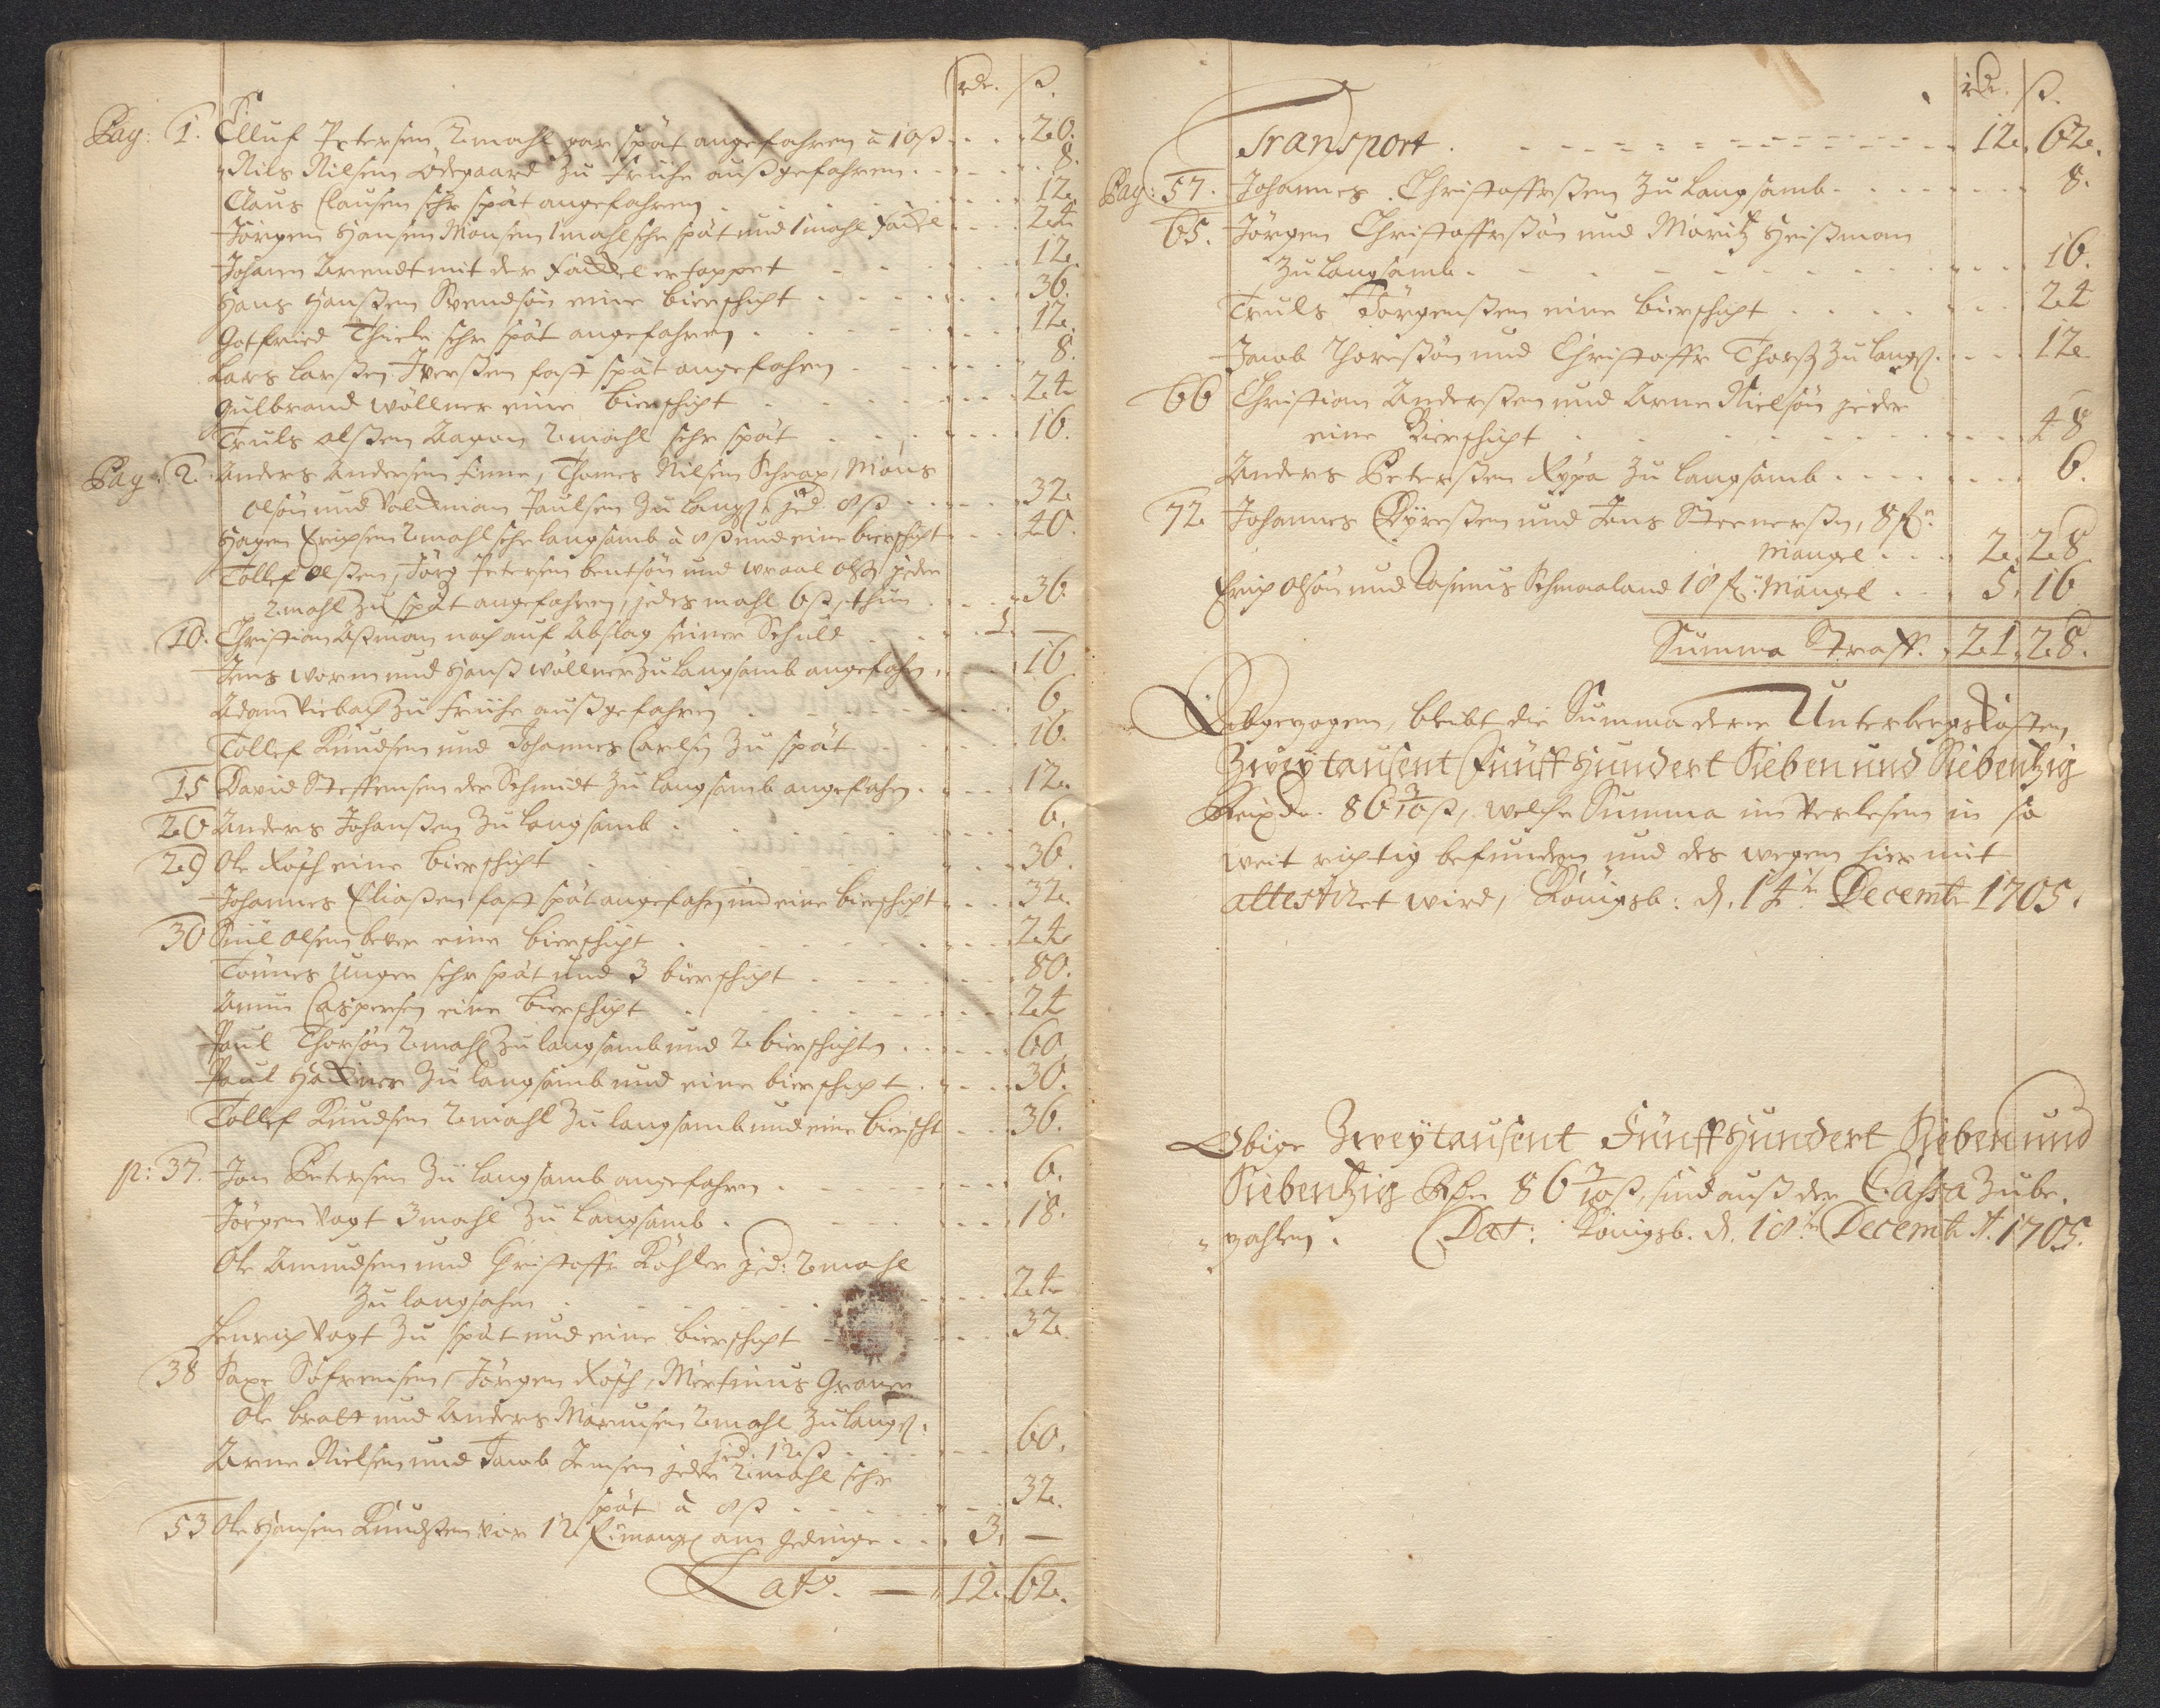 rdr. ß.
Pag: 1. Elluf Petersen 2 mahl gar spät angefahren à 10 ß . . . 20.
Nils Nilsen Ødegaard zu frühe außgefahren . . . 8.
Claus Clausen sehr spät angefahren . . . 12.
Jörgen Hansen Monsen 1 mahl sehr spät und 1 mahl fackl . . . 24
Johann Arendt mit der fackel ertappet . . . 12.
Hans Hanßen Svendsøn eine bierschicht . . . 36.
Gotfried Thiele sehr spät angefahren . . . 12.
Lars Larßen Iverßen fast spät angefahren . . . 8.
Gulbrand Wöllner eine bierschicht . . . 24
Truls Olßen Aagan 2 mahl sehr spät . . . 16.
Pag: 2. Anders Andersen Finne, Thomes Nilsen Schrap, Mons
Olsøn und Paulsen zu langs. jed. 8 ß . . . 32.
Hagen Erichsen 2 mahl sehr langsamb à 8 ß und eine bierschicht . . . 40.
Tollef Olßen, Jörg Petersen bentsøn und Olß. jeder
2 mahl zu spät angefahren, jedes mahl 6 ß, thun . . . 36.
10. Christian Aßman noch auf Abslag seiner Schuld . . . 1. —
Jens Worm und Hanß Wöllner zu langsamb angefahrn . . . 16
Adam Viebach zu frühe außgefahren . . . 6.
Tollef Knudsen und Johannes Carlsen zu spät . . . 16.
15 David Steffensen der Schmidt zu langsamb angefahrn . . . 12.
20 Anders Johanßen zu langsamb . . . 6.
29 Ole Rösch eine bierschicht . . . 36.
Johannes Eliaßen fast spät angefahrn und eine bierschicht . . . 32.
30 Olsen beter eine bierschicht . . . 24
Tönnes Unger sehr spät und 3 bierschicht . . . 80.
Amun Caspersen eine bierschicht . . . 24
Paul Thorsøn 2 mahl zu langsamb und 2 bierschichten . . . 60
Paul Hackner zu langsamb und eine bierschicht . . . 30.
Tollef Knudsen 2 mahl zu langsamb und eine bierscht . . . 36.
p: 37. Jon Petersen zu langsamb angefahren . . . 6.
Jörgen Vogt 3 mahl zu langsamb . . . 18.
Ole Amundsen und Christoffr Köhler jed: 2 mahl
zu langsahm . . . 24
Henrich Vogt zu spät und eine bierschicht . . . 32.
38 Saxe Söfrensen, Jörgen Rösch, Mertinus Graner
Ole bratt und Anders Monsen 2 mahl zu langs.
jed. 12 ß . . . 60.
Arne Nielsen und Jacob Jensen jeder 2 mahl sehr
spät à 8 ß . . . 32.
53 Ole Hansen Knudßen vor 12 mangel am gedinge . . . 3. —
Lats. — 12. 62.
rdr. ß.
Transport . . . 12. 62.
Pag: 57. Johannes Christoffersßen zu langsamb . . . 8.
65. Jörgen Christoffersßøn und Moritz Heißman
zu langsamb . . . 16.
Truls Jörgenßen eine bierschicht . . . 24
Jacob Thoresßøn und Christoffr Thorß. zu langs. . . . 12
66 Christian Andersßen und Arne Nielsøn jeder
eine Bierschicht . . . 48
Anders Petersßen zu langsamb . . . 6.
72 Johannes und Jens Steenersßn, 8
Mangel . . . 2. 28
Erich Olsøn und Rasmus Schmaaland 18 Mangel . . . 5. 16
Summa Straff. 21. 28.
Abgezogen, bleibt die Summa derer Unterbergskosten
Zweytausent Fünff Hundert Sieben und Siebentzig
Reixdr. 86 7/10 ß, welche Summa im verlesen in so
weit richtig befunden und des wegen hier mit
attestiret wird, Königsb: d. 14 tn Decemb. 1705.
Obige Zweytausent Fünff Hundert Sieben und
Siebentzig Rdr 86 7/10 ß, sind auß der Cassa zube-
zahlen. Dat: Königsb. d. 18 tn Decemb. A. 1705.